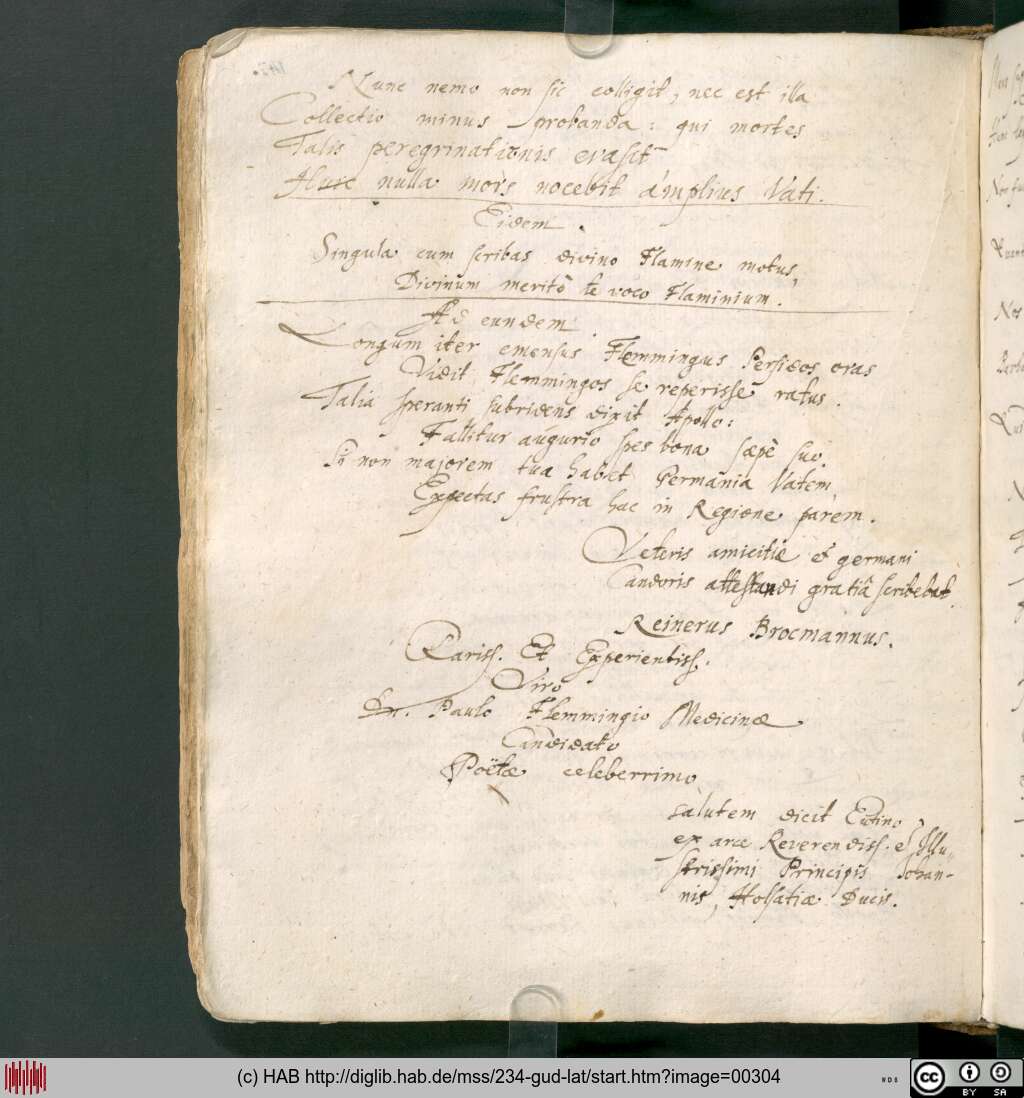 Nunc nemo non sic colligit, nec est illa
Collectio minus probanda: qui mortes
Talis peregrinationis evasit
Huic nulla mors nocebit ámplius Vati.
Eidem.
Singula cum scribas divino Flamine motus,
Divinum meritò te voco Flaminium.
Ad eundem.
Longum iter emensus Flemmingus Persidos oras
Vidit, Flemmingos se reperisse ratus.
Talia speranti subridens dixit Apollo:
Fallitur augurio spes bona sæpè suo.
Si non majorem tua habet Germania Vatem,
Expectas frustra hac in Regione parem.
Veteris amicitiæ et germani
Candoris attestandi gratiâ scribebat
Reinerus Brocmannus.
Clariss. Et Experientiss.
Viro
Dn. Paulo Flemmingio Medicinæ
Candidato
Poëtæ celeberrimo
salutem dicit Eutino
ex arce Reverendiss. et Illu-
strissimi Principis Johan-
nis, Holsatiæ Ducis.
(c) HAB http://diglib.hab.de/mss/234-gud-lat/start.htm?image=00304
WDB
cc BY SA